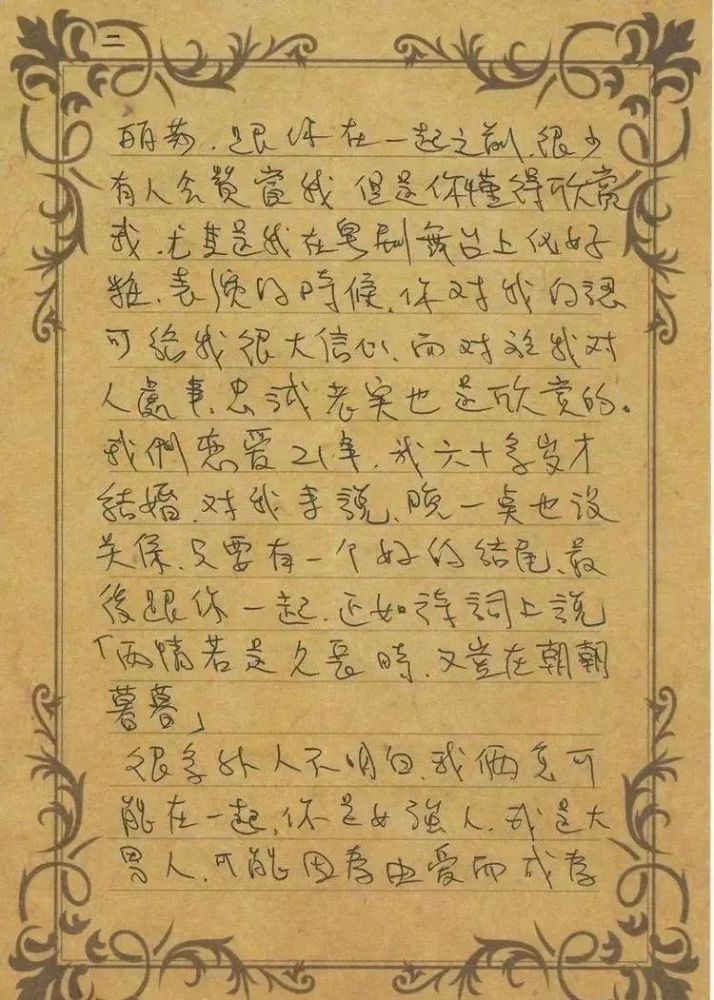 二
丽莎．跟你在一起之前．很少
有人会賛賞我 但是你懂得欣赏
我．尤其是我在粤剧舞台上做好
表演的時候．你对我的認
可給我很大信心．而对於我对
人處事．忠誠老实也是欣赏的。
我們恋爱21年．我六十多岁才
結婚．对我来說．晚一点也没
关係．只要有一个好的結尾．最
後跟你一起．正如詩詞上說
「両情若是久長時．又豈在朝朝
暮暮」
很多外人不明白．我俩怎可
能在一起．你是女強人．我是大
男人．可能因為由爱而成為